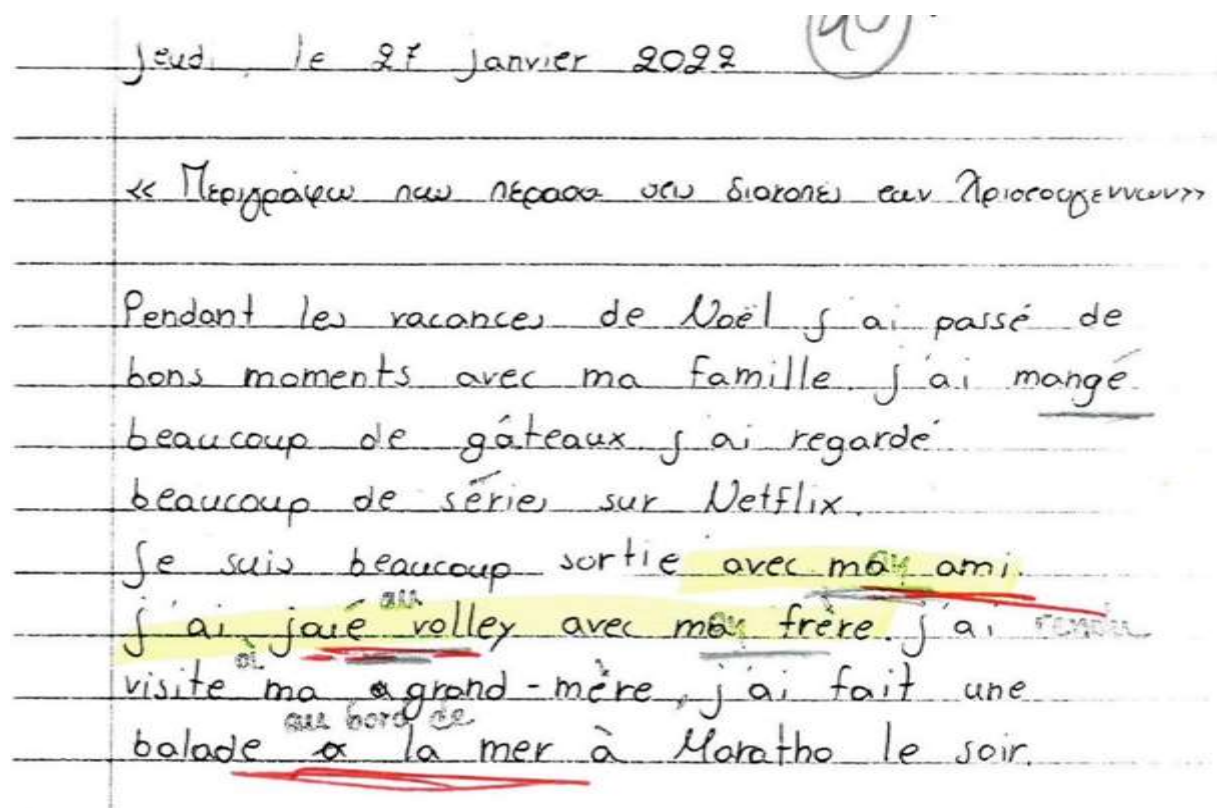 jeudi, le 27 janvier 2022
« Περιγράφω πως πέρασα στις διακοπές των Χριστουγεννων»
Pendant les vacances de Noël j'ai passé de
bons moments avec ma famille. j'ai mangé
beaucoup de gâteaux j'ai regardé
beaucoup de séries sur Netflix.
Je suis beaucoup sortie avec mon ami.
au
j'ai joué volley avec mon frère. j'ai rendu
à
visite ma grand-mère, j'ai fait une
au bord de
balade a la mer à Maratho le soir.